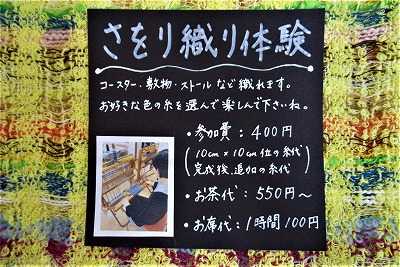 さをり織り体験
コースター・敷物・ストールなど織れます。
お好きな色の糸を選んで楽しんで下さいね。
・参加費：400円
(10cm×10cm位の糸代
完成後、追加の糸代)
・お茶代：550円〜
・お席代：1時間100円